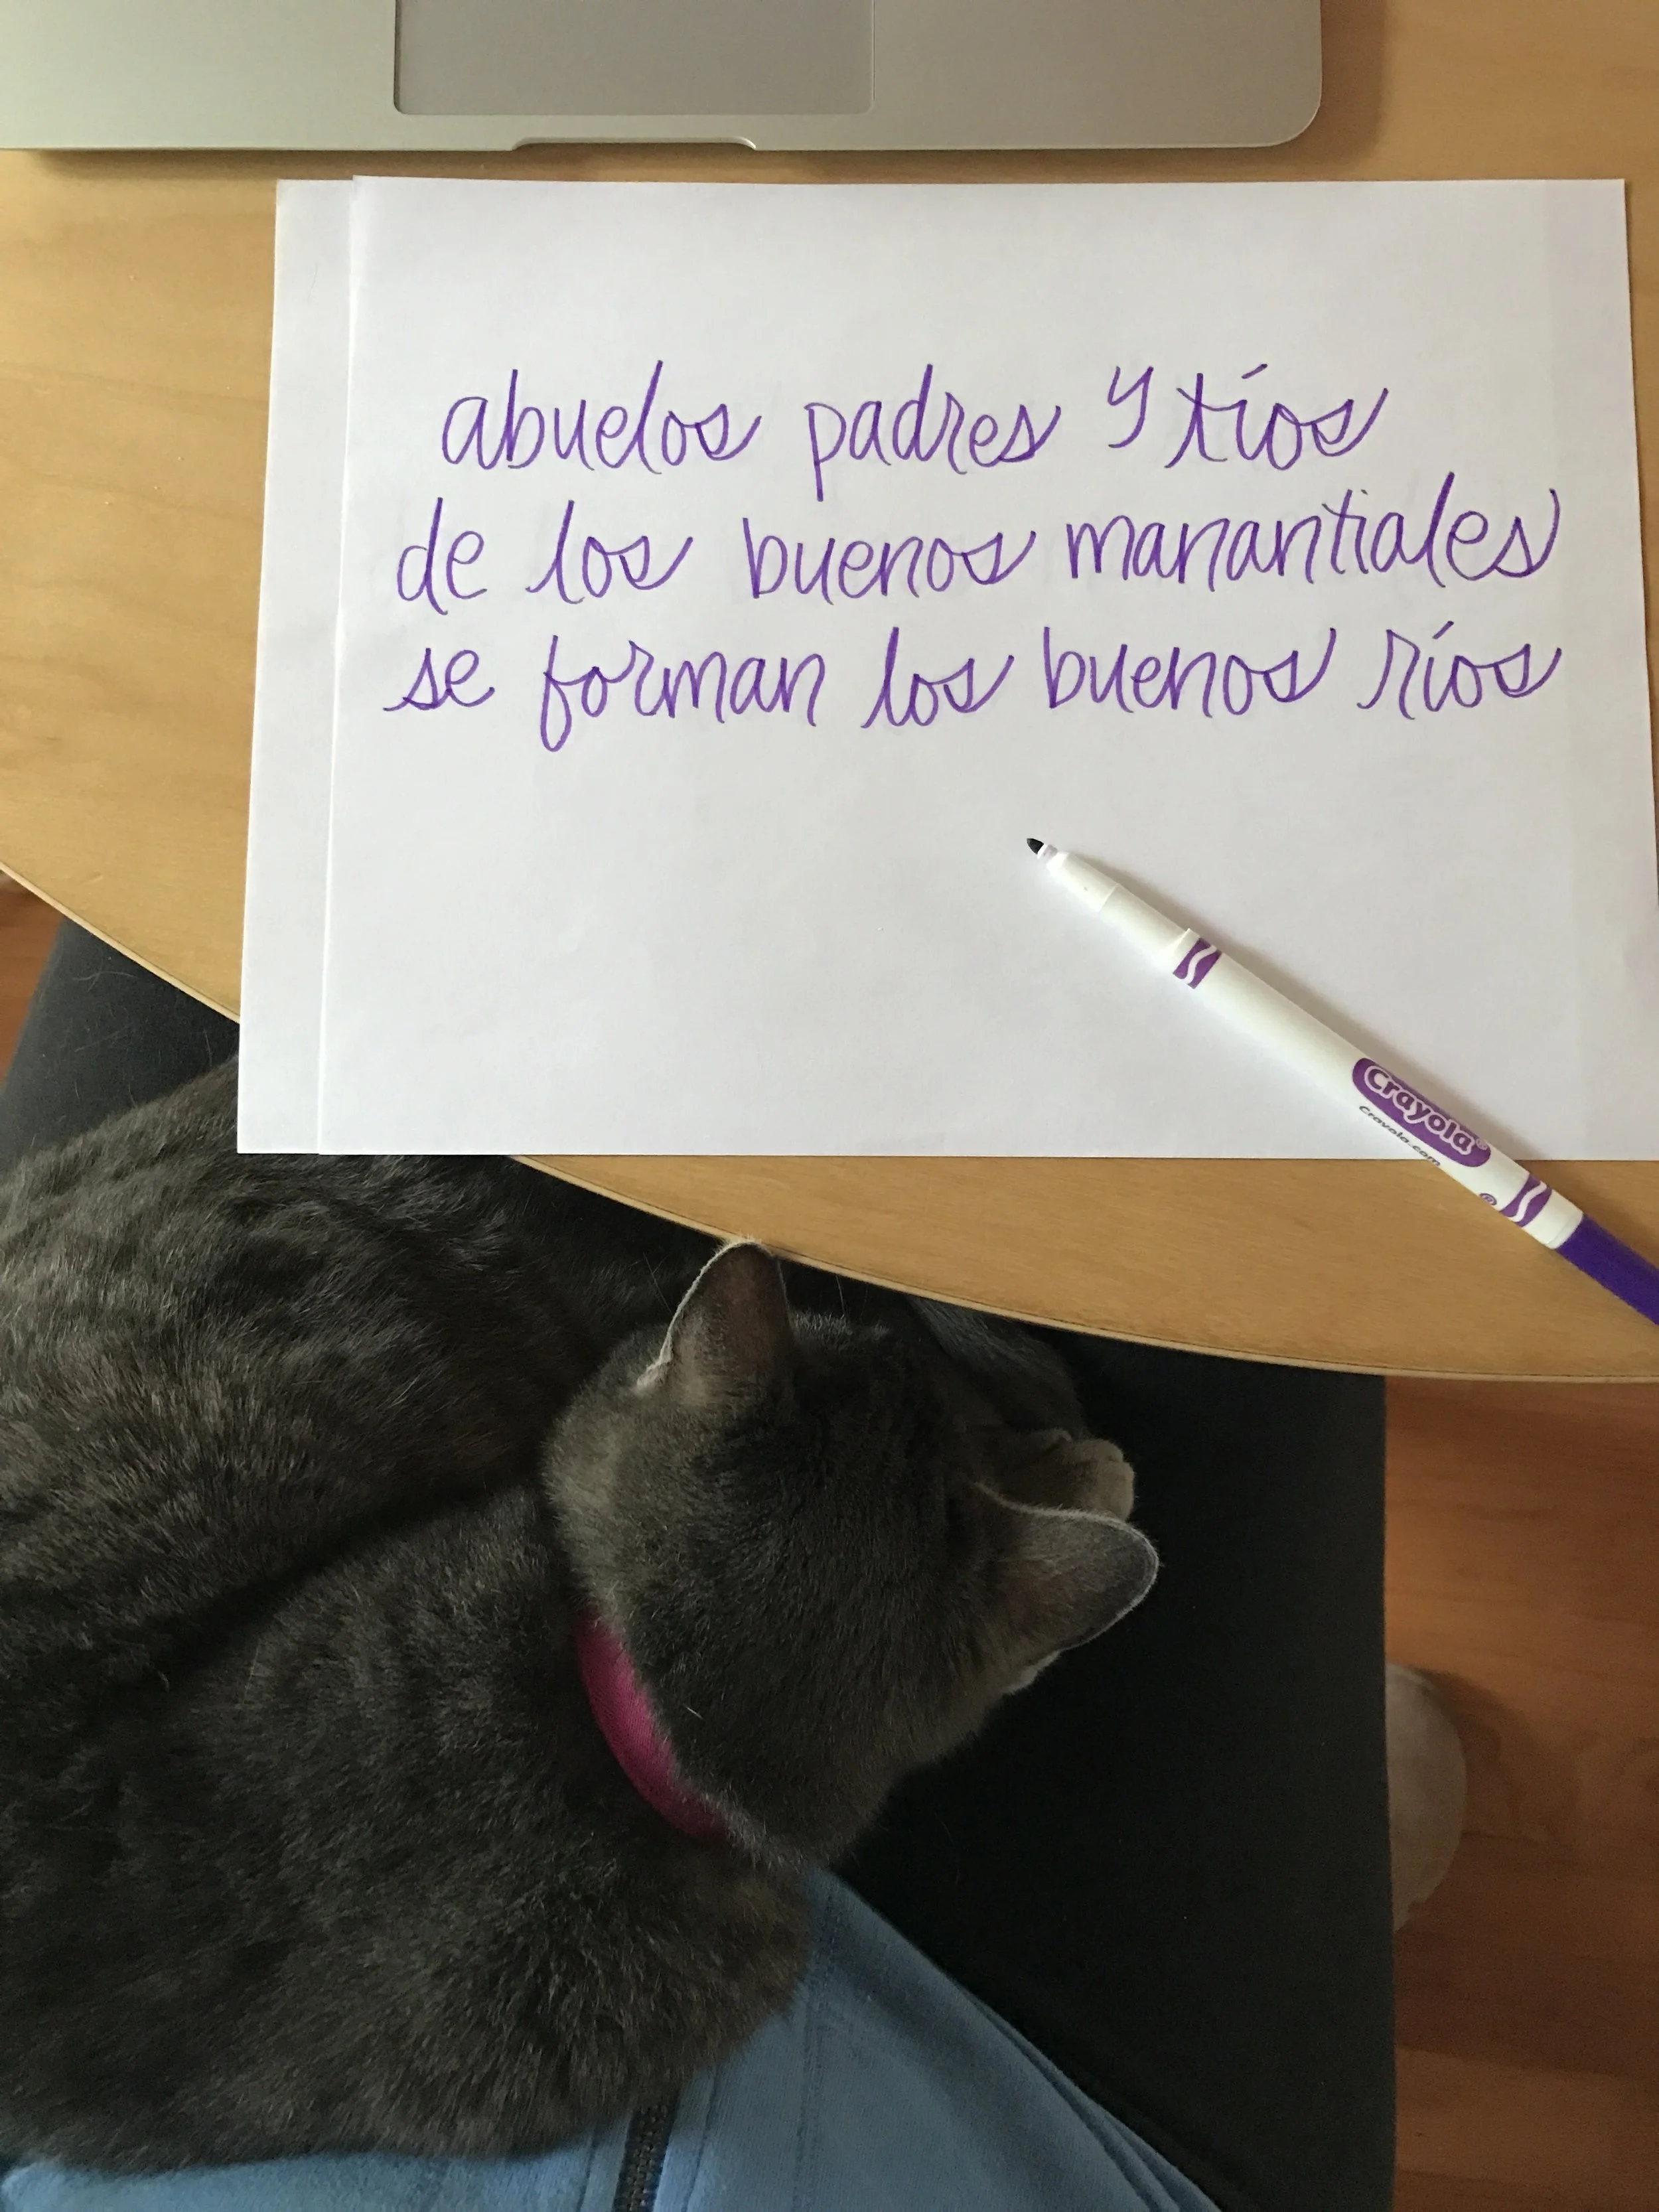 abuelos padres y tíos
de los buenos manantiales
se forman los buenos ríos
Crayola®
Crayola.com
®